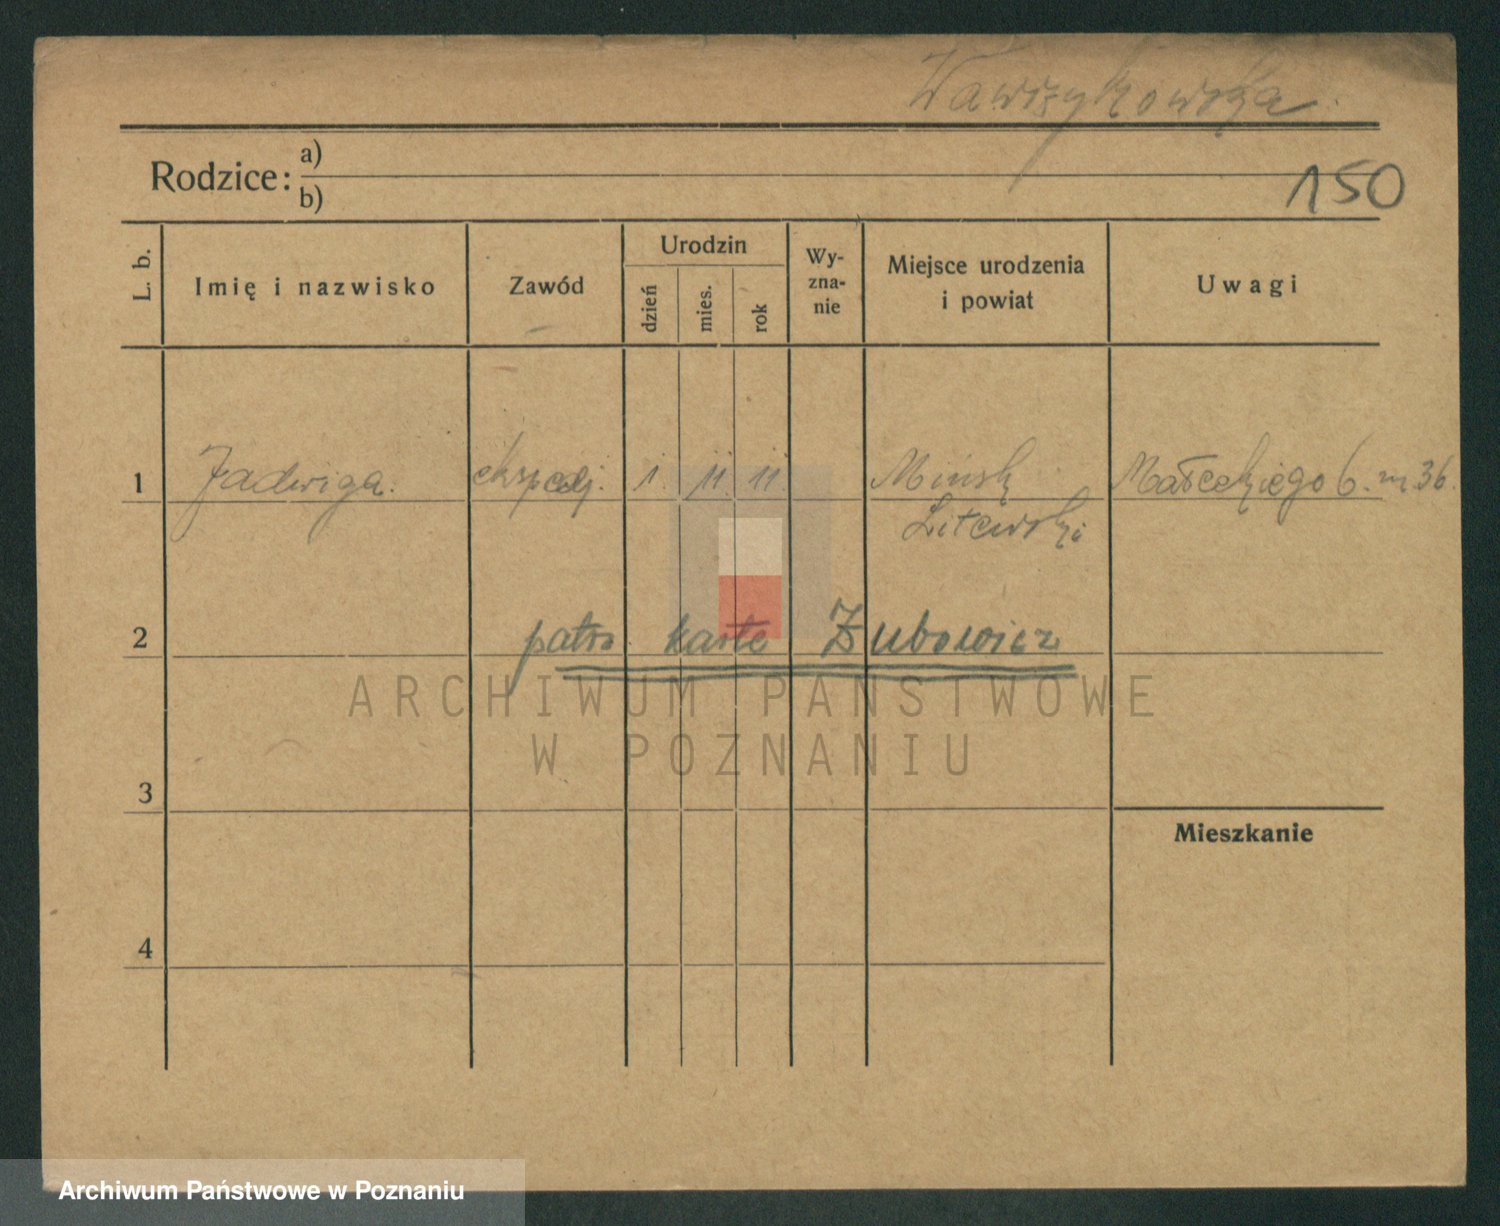 Wawrzykowska.
Rodzice: a)
b)
150
L. b. Imię i nazwisko Zawód Urodzin dzień mies. rok Wy-zna-nie Miejsce urodzenia i powiat Uwagi
1 Jadwiga. ekspedj. 1. 11. 11. Mińsk Małeckiego 6. m 36.
Litewski
2 patrz kartę Zubowicz
ARCHIWUM PAŃSTWOWE
W POZNANIU
3
Mieszkanie
4
Archiwum Państwowe w Poznaniu